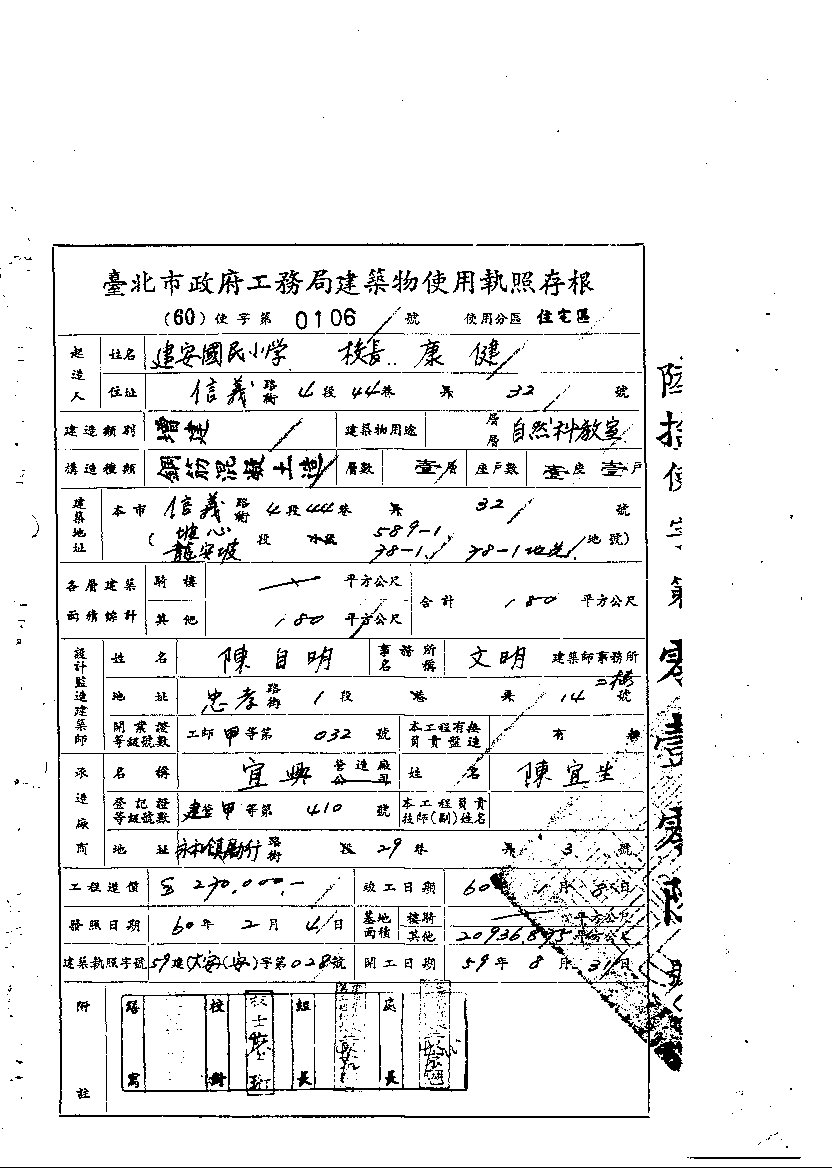 臺北市政府工務局建築物使用執照存根
(60)使字第 0106 號 使用分區 住宅區
起造人 姓名 建安國民小学 校長 康健
住址 信義路街 4段 44巷 弄 32 號
建造類別 增建 建築物用途 層層 自然科教室
構造種類 鋼筋混凝土造 層數 壹層 座戶數 壹座 壹戶
建築地址 本市 信義路街 4段44巷 弄 32 號
(坡心 段 589-1
龍安坡 38-1 38-1地號)
各層建築面積總計 騎樓 平方公尺 合計 180 平方公尺
其他 180 平方公尺
設計監造建築師 姓名 陳自明 事務所名稱 文明 建築師事務所
地址 忠孝路街 1段 巷 弄 14 號 二樓
開業證等級號數 工師甲等第 032 號 本工程有無負責監造 有 無
承造廠商 名稱 宜興 營造廠公司 姓名 陳宜生
登記證等級號數 建营甲等第 410 號 本工程負責技師(副)姓名
地址 永和鎮勵行路街 段 29巷 弄 3 號
工程造價 270,000.- 竣工日期 60 1月 8日
發照日期 60年 2月 4日 基地面積 樓騎 平方公尺
其他 平方公尺
建築執照字號 59建(大安)(安)字第028號 開工日期 59年 8月 31日
附註 繕寫 校對 組長 處長
陸拾使字第零壹零陸號